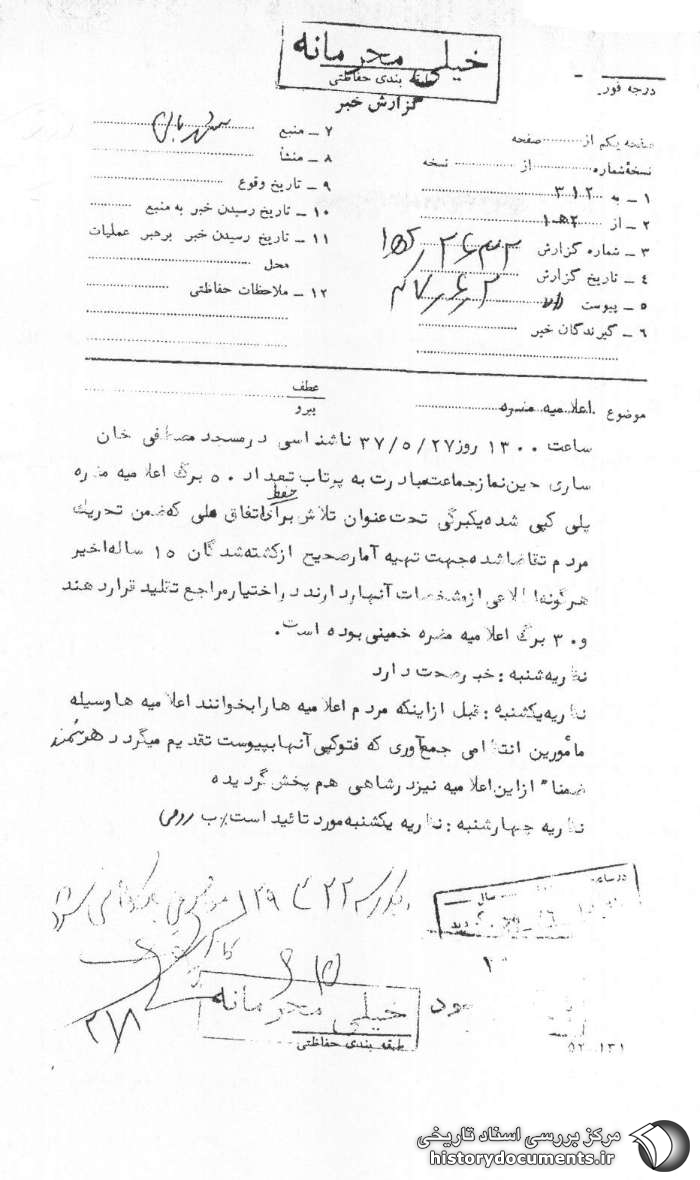 خیلی محرمانه
طبقه بندی حفاظتی
گزارش خبر
درجه فوریت
صفحه یکم از صفحه
نسخهٔ شماره از نسخه
۱ – به ۳۱۲
۲ – از ۲ﻫ۱
۳ – شماره گزارش ۲۶۴۲
۴ – تاریخ گزارش
۵ – پیوست
۶ – گیرندگان خبر
۷ – منبع
۸ – منشأ
۹ – تاریخ وقوع
۱۰ – تاریخ رسیدن خبر به منبع
۱۱ – تاریخ رسیدن خبر برهبر عملیات
محل
۱۲ – ملاحظات حفاظتی
موضوع اعلامیه مضره
عطف
پیرو
ساعت ۱۳۰۰ روز ۳۷/۵/۲۷ ناشناسی در مسجد مصطفی خان
ساری حین نماز جماعت مبادرت به پرتاب تعداد ۵۰ برگ اعلامیه مضره
پلی کپی شده یکبرگی تحت عنوان تلاش برای حفظ اتفاق ملی که ضمن تحریک
مردم تقاضا شده جهت تهیه آمار صحیح از کشته شدگان ۱۵ ساله اخیر
هرگونه اطلاعی از مشخصات آنها دارند در اختیار مراجع تقلید قرار دهند
و ۳۰ برگ اعلامیه مضره خمینی بوده است.
نظریه شنبه : خبر صحت دارد
نظریه یکشنبه : قبل از اینکه مردم اعلامیه ها را بخوانند اعلامیه ها وسیله
مأمورین انتظامی جمع‌آوری که فتوکپی آنها بپیوست تقدیم میگردد هوشمند
ضمناً از این اعلامیه نیز در شاهی هم پخش گردیده
نظریه چهارشنبه : نظریه یکشنبه مورد تائید است. ب رومی
در ساعت
سال
خیلی محرمانه
طبقه بندی حفاظتی
۲۷۱
۵۲ – ۱۳۱
مرکز بررسی اسناد تاریخی
historydocuments.ir